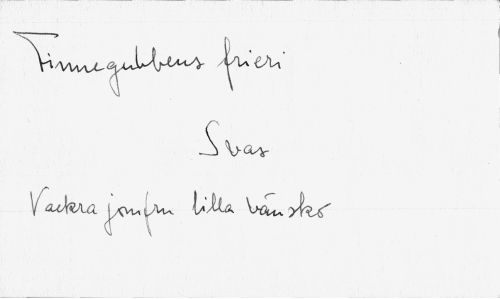 Finnegubbens frieri
Svas
Vackra jomfru lilla vänskö